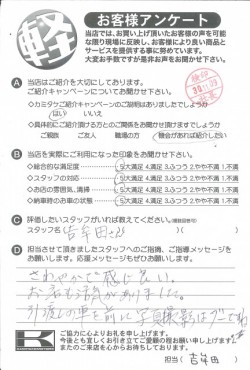 軽
お客様アンケート
当店では、お買い上げ頂いたお客様の声を可能
な限り現場に反映し、お客様により良い商品と
サービスを提供する事に努めています。
大変お手数ですが是非お声をお聞かせ下さい。
A 当店はご紹介を大切にしております。
ご紹介キャンペーンについてお聞かせ下さい。
◇カミタケご紹介キャンペーンのご説明はありましたでしょうか
はい いいえ
◇具体的にご紹介頂ける方との関係をお聞かせ頂けますでしょうか
ご親族 ご友人 職場の方 機会があれば紹介したい
B 当店を実際にご利用になった印象をお聞かせ下さい。
◇総合的な満足度 5大満足 4.満足 3.ふつう 2.やや不満 1.不満
◇スタッフの対応 5大満足 4.満足 3.ふつう 2.やや不満 1.不満
◇お店の雰囲気、清掃 5大満足 4.満足 3.ふつう 2.やや不満 1.不満
◇納車時のお車の状態 5大満足 4.満足 3.ふつう 2.やや不満 1.不満
C 評価したいスタッフがいれば教えてください。(複数回答可)
スタッフ名 吉年田さん
D 担当させて頂きましたスタッフへのご指摘、ご指導メッセージを
お願いします。応援メッセージもぜひお願いします。
さわやかで感じ良い。
お店も活気がありました。
引渡しの車を前に写真撮影はグーですね
K
ご協力に心よりお礼を申し上げます。
今後とも宜しくお引き立てご愛顧の程お願い申し上げます。
またのご来店を心からお待ちしております。
担当( 吉年田 )